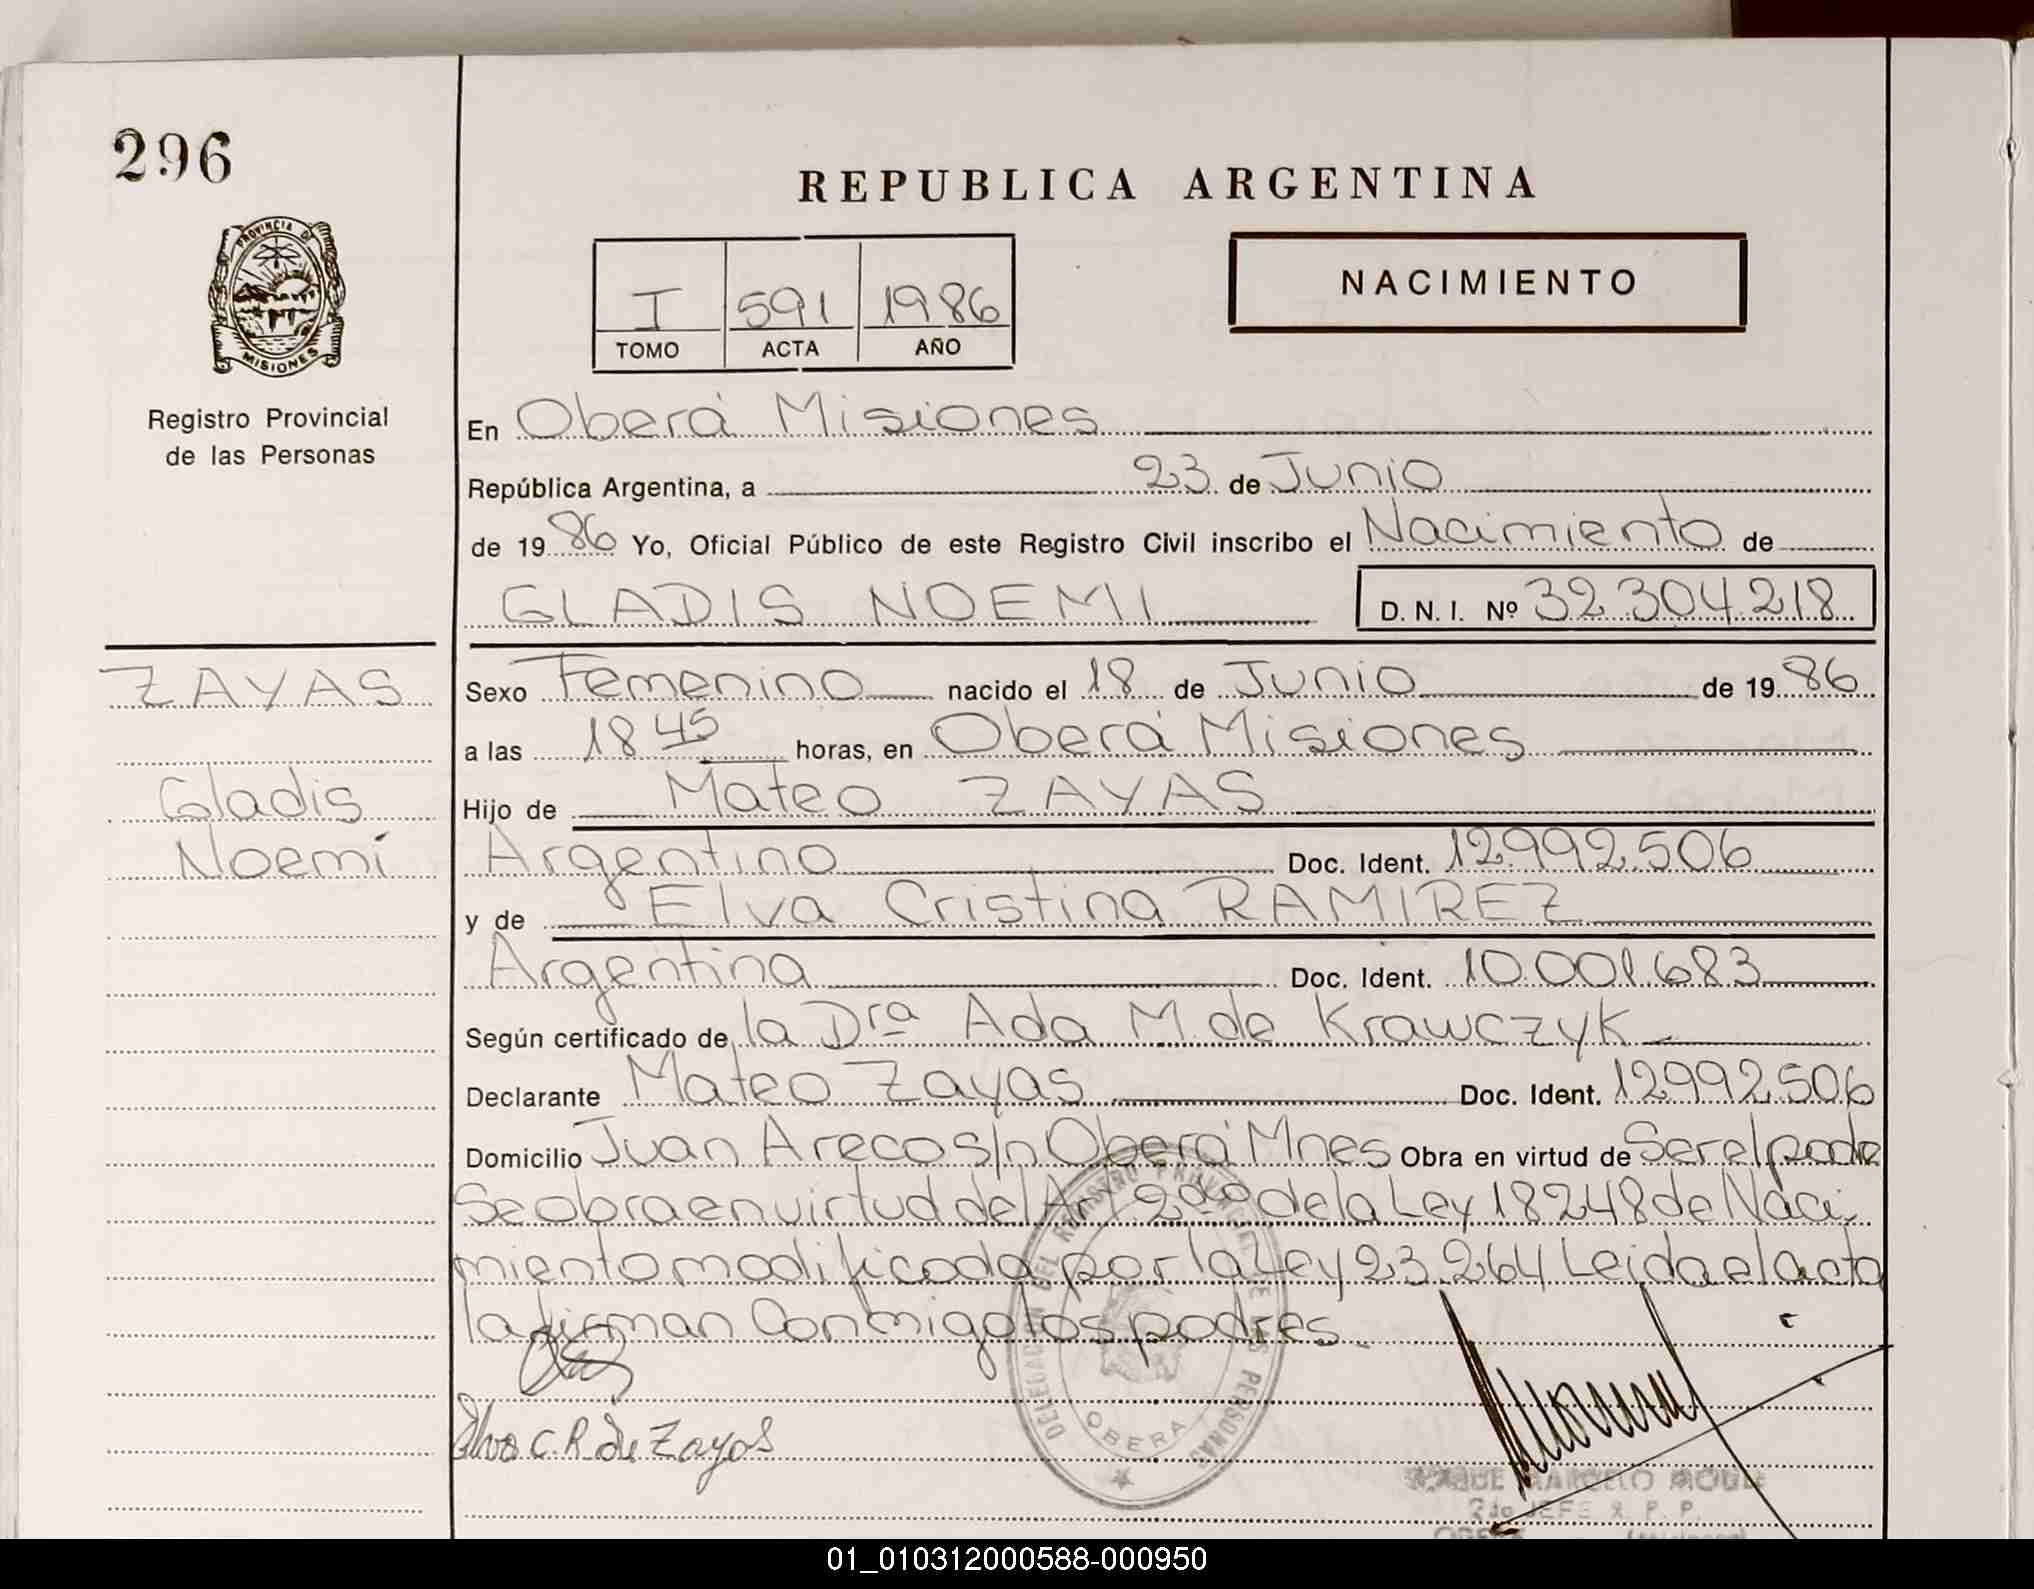 296
REPUBLICA ARGENTINA
PROVINCIA DE
MISIONES
Registro Provincial
de las Personas
I 591 1986
TOMO ACTA AÑO
NACIMIENTO
En Oberá Misiones
República Argentina, a 23 de Junio
de 1986 Yo, Oficial Público de este Registro Civil inscribo el Nacimiento de
GLADIS NOEMI D. N. I. Nº 32.304.218
ZAYAS
Gladis
Noemí
Sexo Femenino nacido el 18 de Junio de 1986
a las 18 45 horas, en Oberá Misiones
Hijo de Mateo ZAYAS
Argentino Doc. Ident. 12.992.506
y de Elva Cristina RAMIREZ
Argentina Doc. Ident. 10.001.683
Según certificado de la Dra Ada M. de Krawczyk
Declarante Mateo Zayas Doc. Ident. 12992.506
Domicilio Juan Areco s/n Oberá Mnes Obra en virtud de Ser el padre
Se obra en virtud del Art 2do de la Ley 18248 de Naci
miento modificada por la Ley 23.264 Leida el acta
la firman Conmigo los padres.
Elva C. R. de Zayas
DELEGACION DEL REGISTRO PROVINCIAL DE LAS PERSONAS
OBERA
MARCELO
2do JEFE R. P. P.
01_010312000588-000950